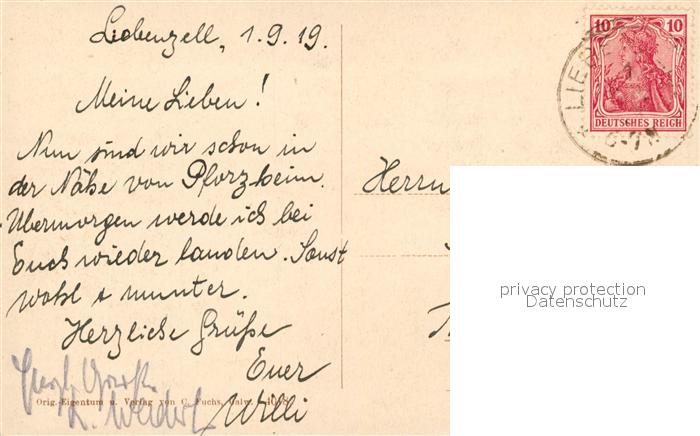 Liebenzell, 1.9.19.
Meine Lieben!
Nun sind wir schon in
der Nähe von Pforzheim.
Übermorgen werde ich bei
Euch wieder landen. Sonst
wohl & munter.
Herzliche Grüße
Euer
Willi
Orig.-Eigentum u. Verlag von C. Fuchs, Calw.
Herrn
10 10
DEUTSCHES REICH
LIEBE
privacy protection
Datenschutz